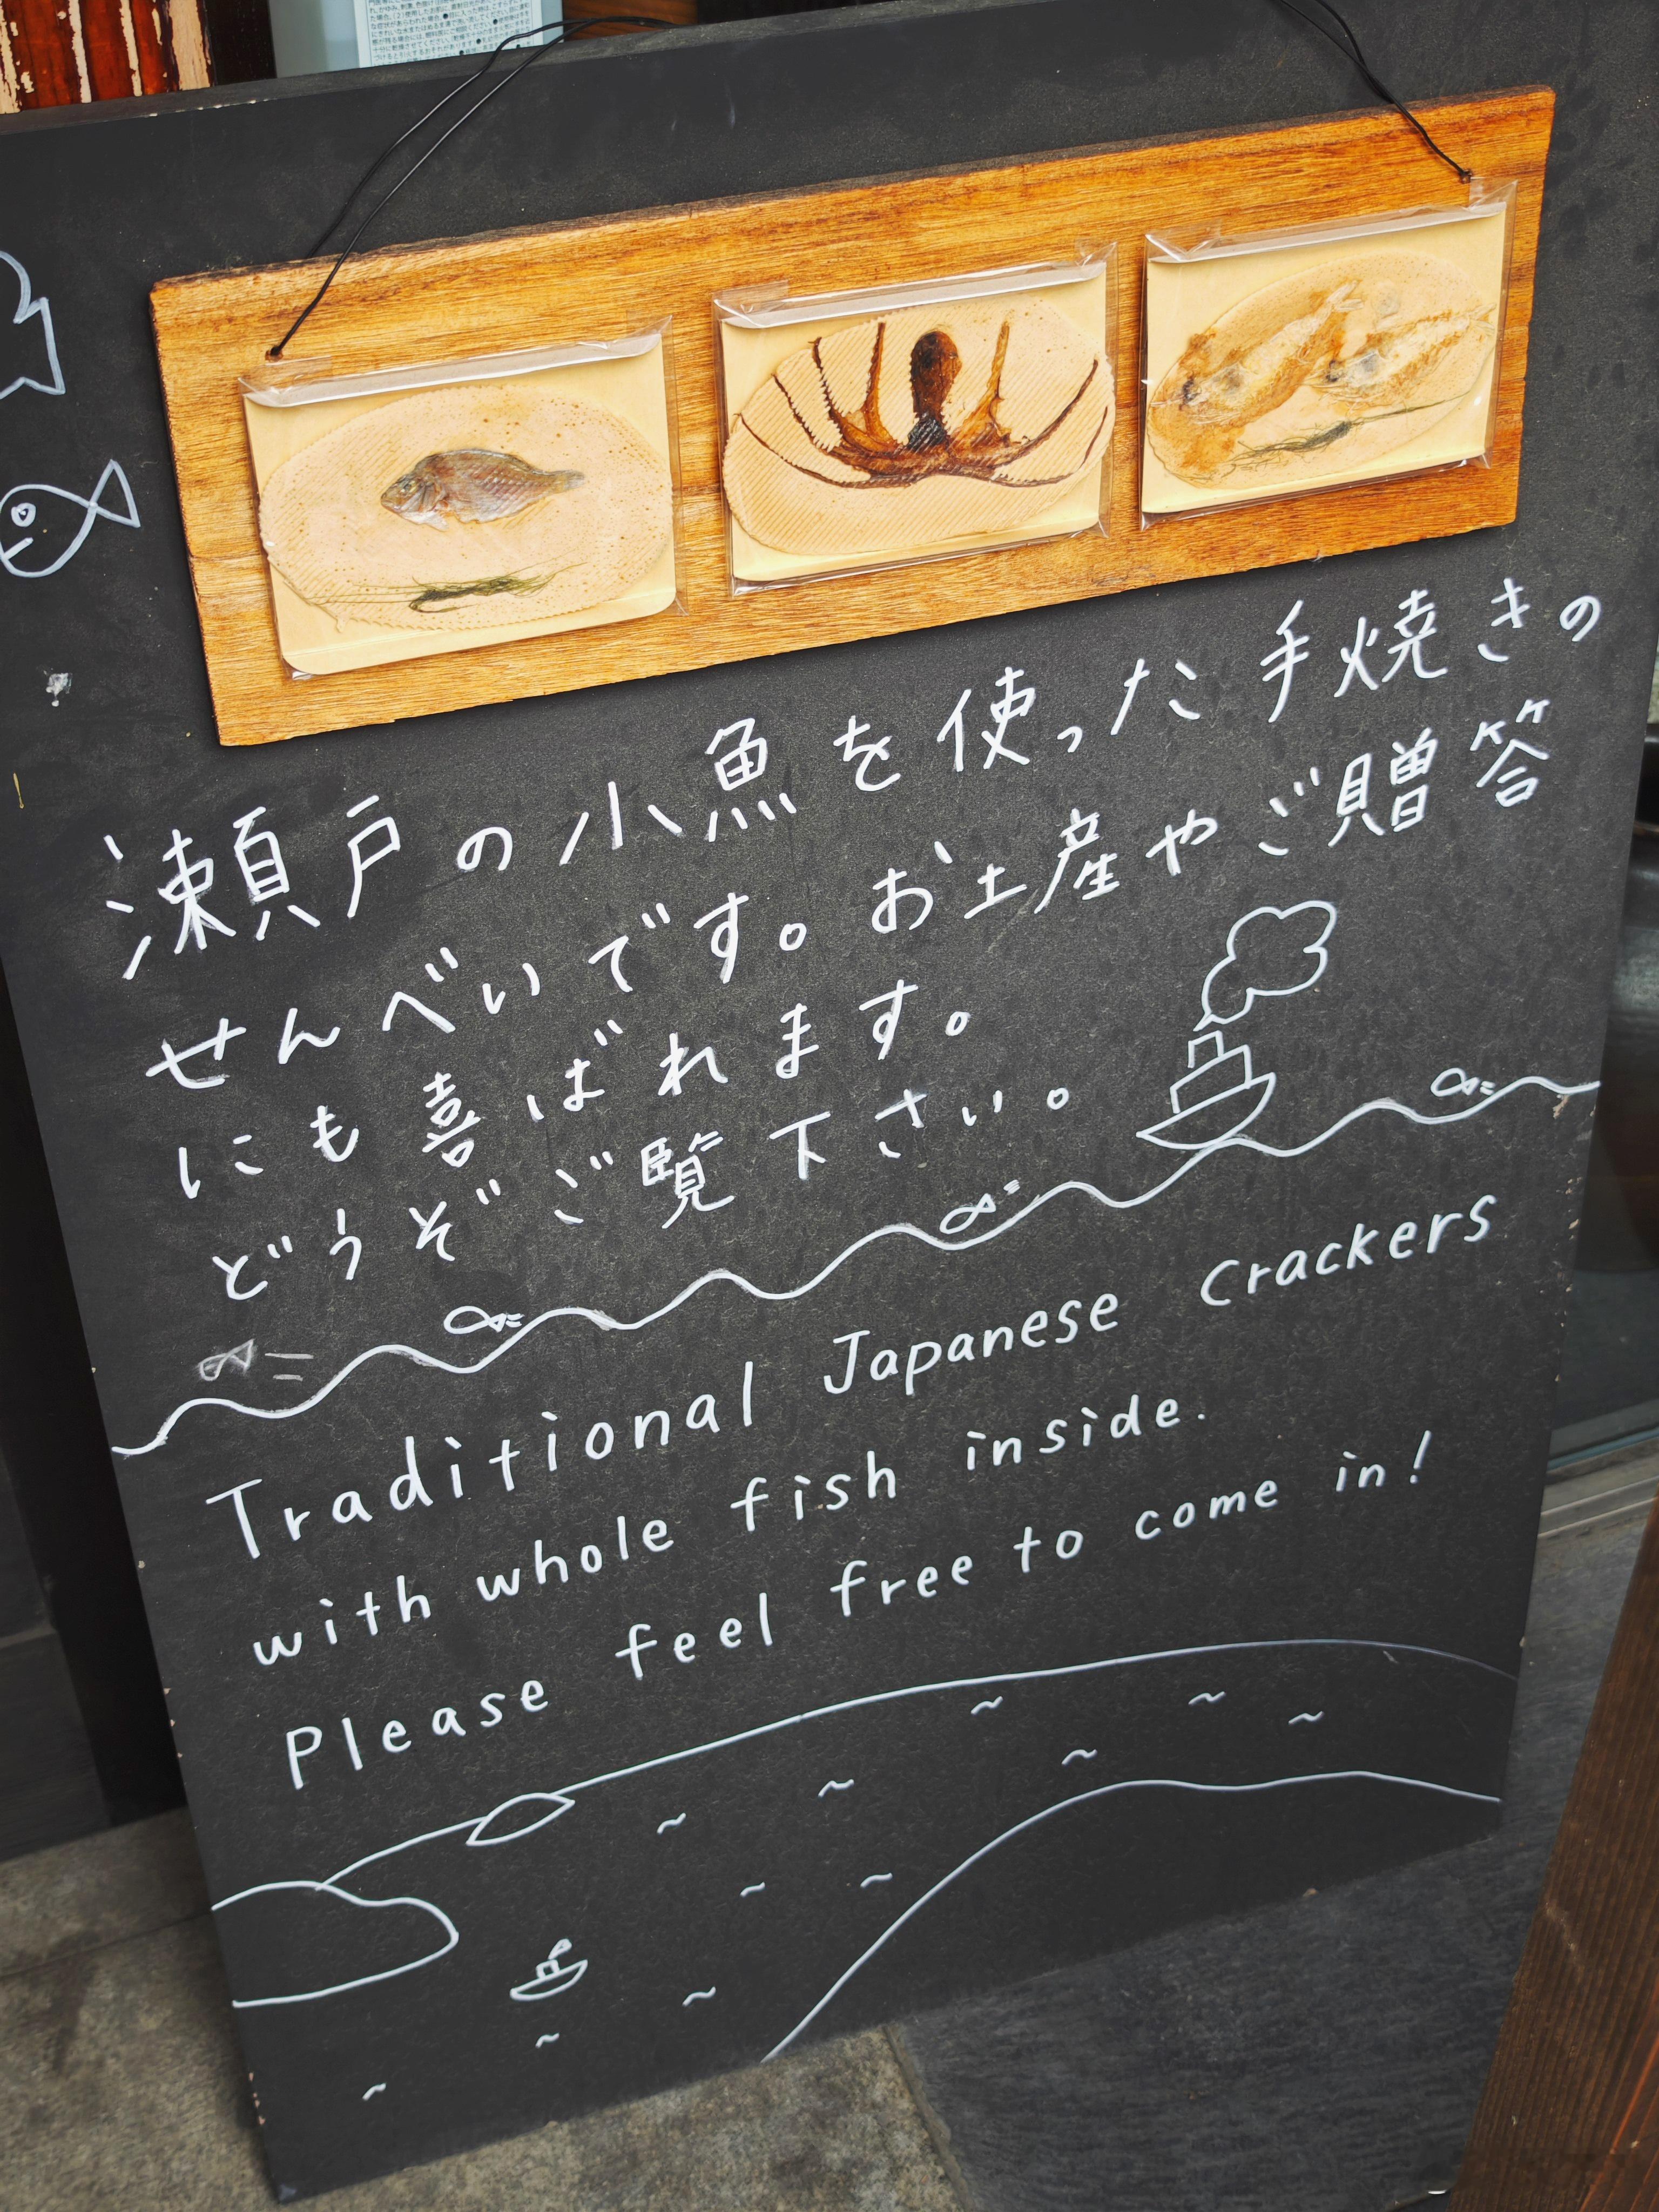 瀬戸の小魚を使った手焼きの
せんべいです。お土産やご贈答
にも喜ばれます。
どうぞご覧下さい。
Traditional Japanese Crackers
with whole fish inside.
Please feel free to come in!